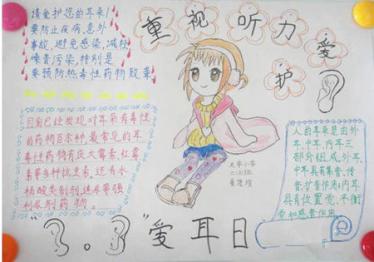 重视听力爱护
请爱护您的耳朵!
要防止疾病,意外
事故,避免感染,减轻
噪音污染,特别是
要预防热毒性药物致聋
目前已经发现对耳朵有毒性
的药物百余种,最常见的耳
毒性药物有庆大霉素,红霉
素等多种抗生素,还有水
杨酸类制剂,速尿等强
利尿剂药物。
人的耳朵是由外
耳,中耳,内耳三
部分组成,外耳,
中耳具有集音,传
音,扩音作用,内耳
具有位置觉,平衡
"3。3"爱耳日